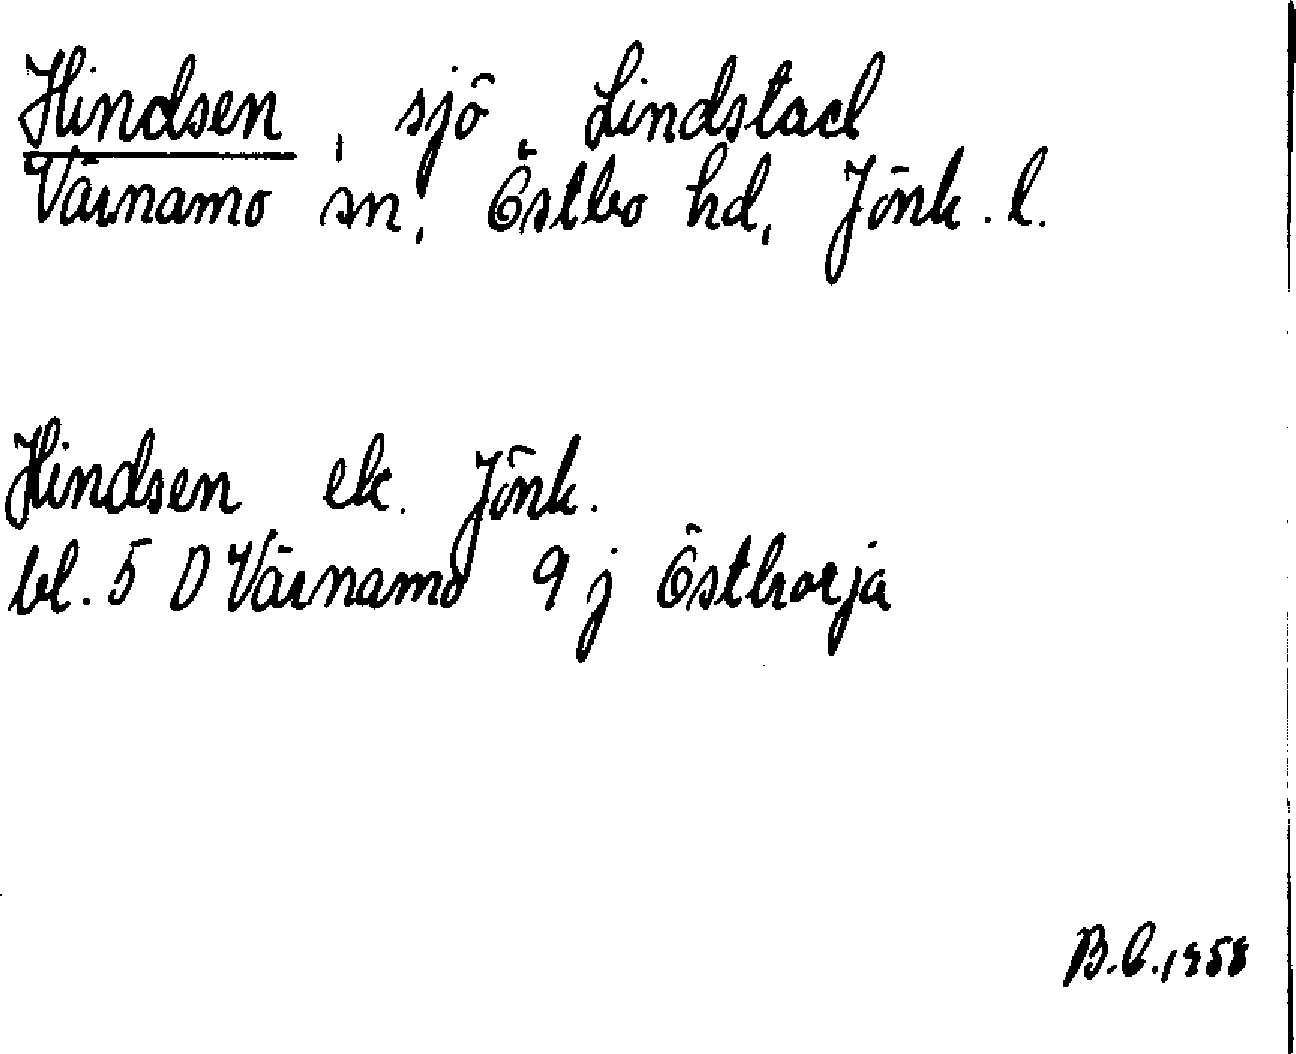 Hindsen, sjö, Lindstad
Värnamo sn, Östbo hd, Jönk. l.
Hindsen ek. Jönk.
bl. 5 D Värnamo 9 j Östhorja
B.C. 1958